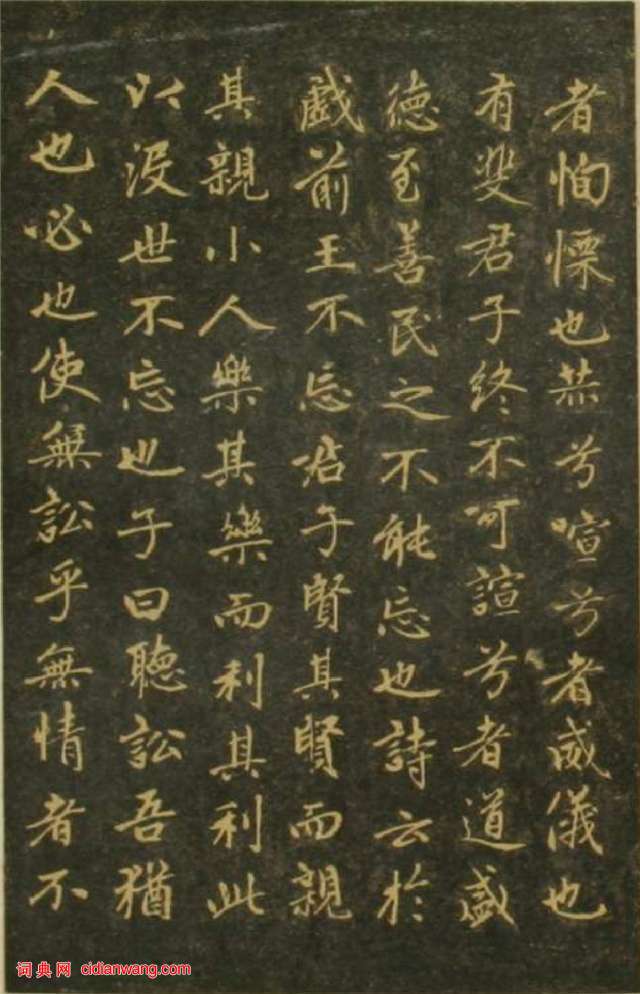 者恂慄也赫兮喧兮者威儀也
有斐君子終不可諠兮者道盛
德至善民之不能忘也詩云於
戲前王不忘君子賢其賢而親
其親小人樂其樂而利其利此
以沒世不忘也子曰聽訟吾猶
人也必也使無訟乎無情者不
词典网 cidianwang.com